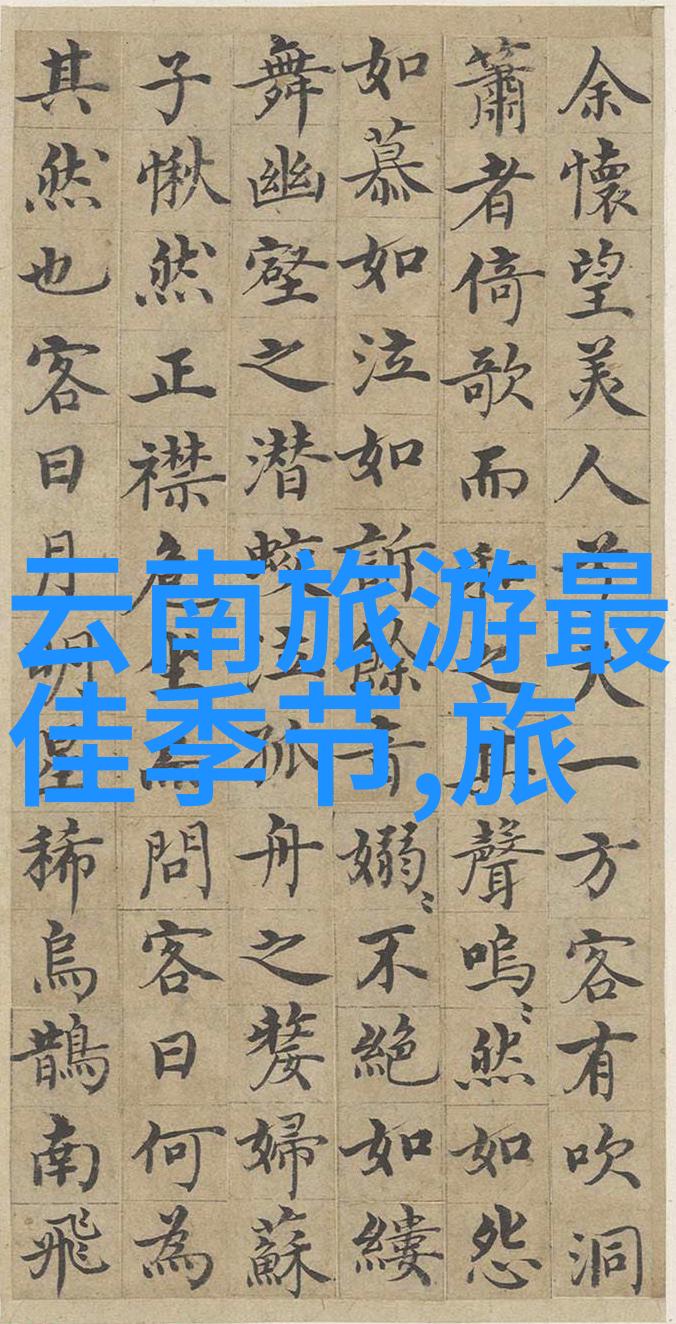 余懷望美人兮天一方客有吹洞
簫者倚歌而和之其聲嗚〻然如怨
如慕如泣如訴餘音嫋〻不絕如縷
舞幽壑之潜蛟泣孤舟之嫠婦蘇
子愀然正襟危坐而問客曰何為
其然也客曰月明星稀烏鵲南飛
云南旅游最
佳季节,旅